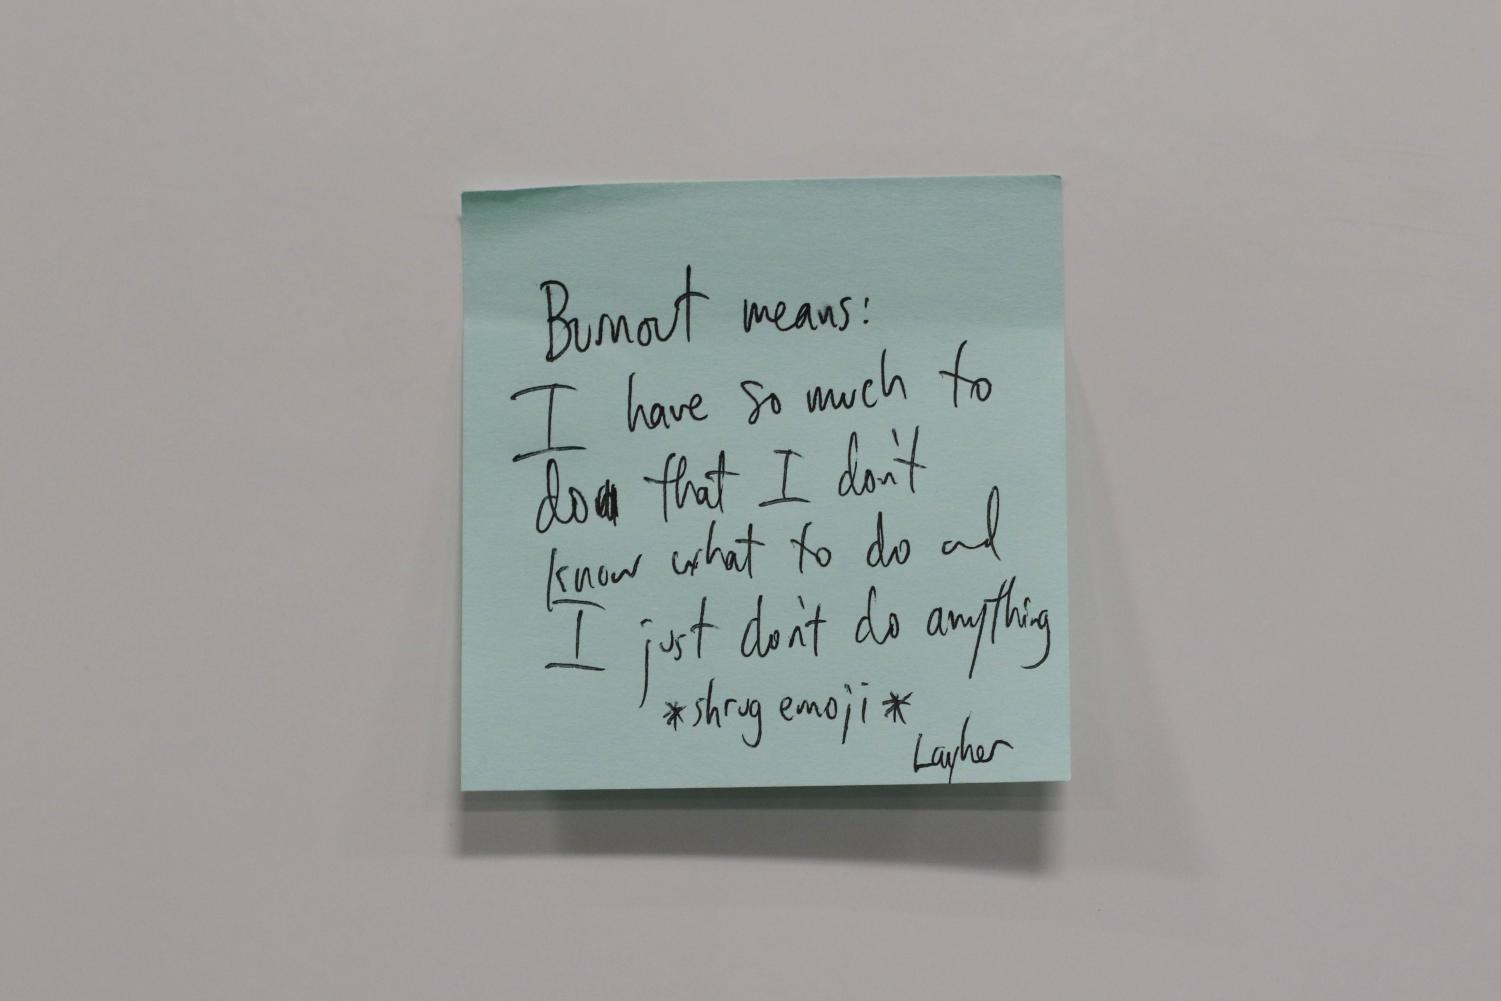 Burnout means:
I have so much to
do that I don't
know what to do and
I just don't do anything
*shrug emoji*
Layher